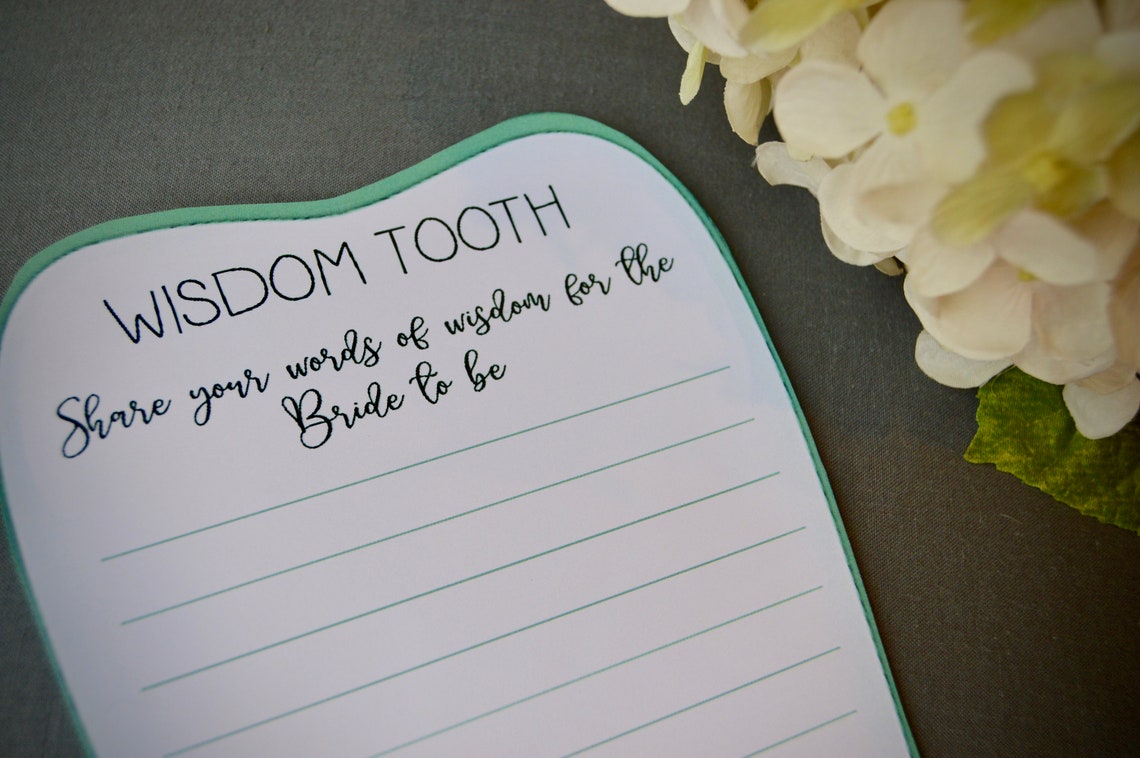 WISDOM TOOTH
Share your words of wisdom for the
Bride to be